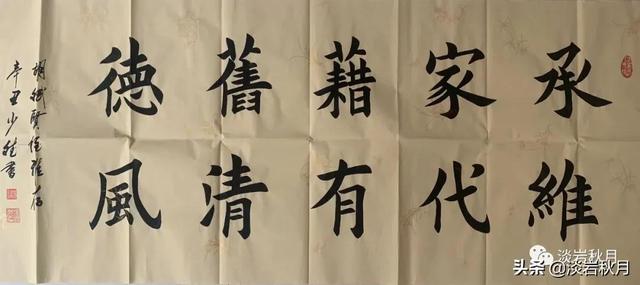 承家藉舊德
維代有清風
胡斌賢侄雅
辛丑少書
淡岩秋月
头条 @淡岩秋月